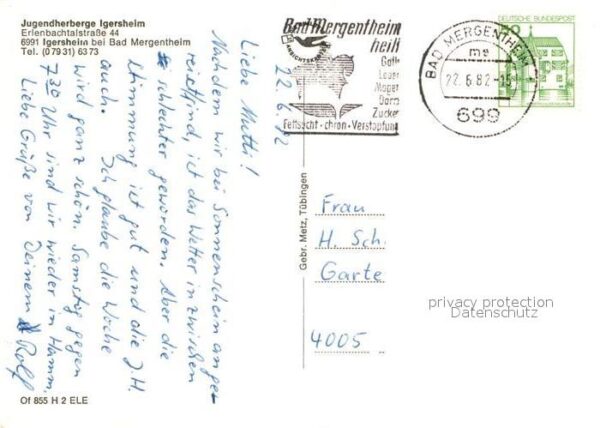 Jugendherberge Igersheim
Erlenbachtalstraße 44
6991 Igersheim bei Bad Mergentheim
Tel. (07931) 6373
22.6.82
Liebe Mutti!
Nachdem wir bei Sonnenschein ange-
reist sind, ist das Wetter inzwischen
schlechter geworden. Aber die
Stimmung ist gut und die J.H.
auch. Ich glaube die Woche
wird ganz schön. Samstag gegen
7.30 Uhr sind wir wieder in Hamm.
Liebe Grüße von Deinem Rolf
Of 855 H 2 ELE
Gebr. Metz, Tübingen
Bad Mergentheim
heilt
Galle
Leber
Magen
Darm
Zucker
Fettsucht · chron · Verstopfung
BAD MERGENTHEIM
me
22.6.82-15
699
DEUTSCHE BUNDESPOST
Frau
H. Sch
Garte
4005
privacy protection
Datenschutz